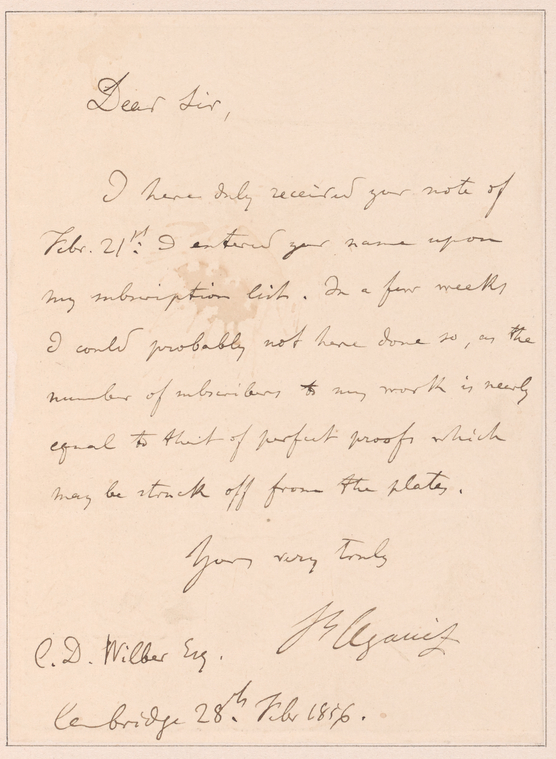 Dear Sir,
I have duly received your note of
Febr. 21st: I entered your name upon
my subscription list. In a few weeks
I could probably not have done so, as the
number of subscribers to my work is nearly
equal to that of perfect proofs which
may be struck off from the plates.
Yours very truly
Ls Agassiz
C. D. Wilber Esq.
Cambridge 28th. Febr 1856.